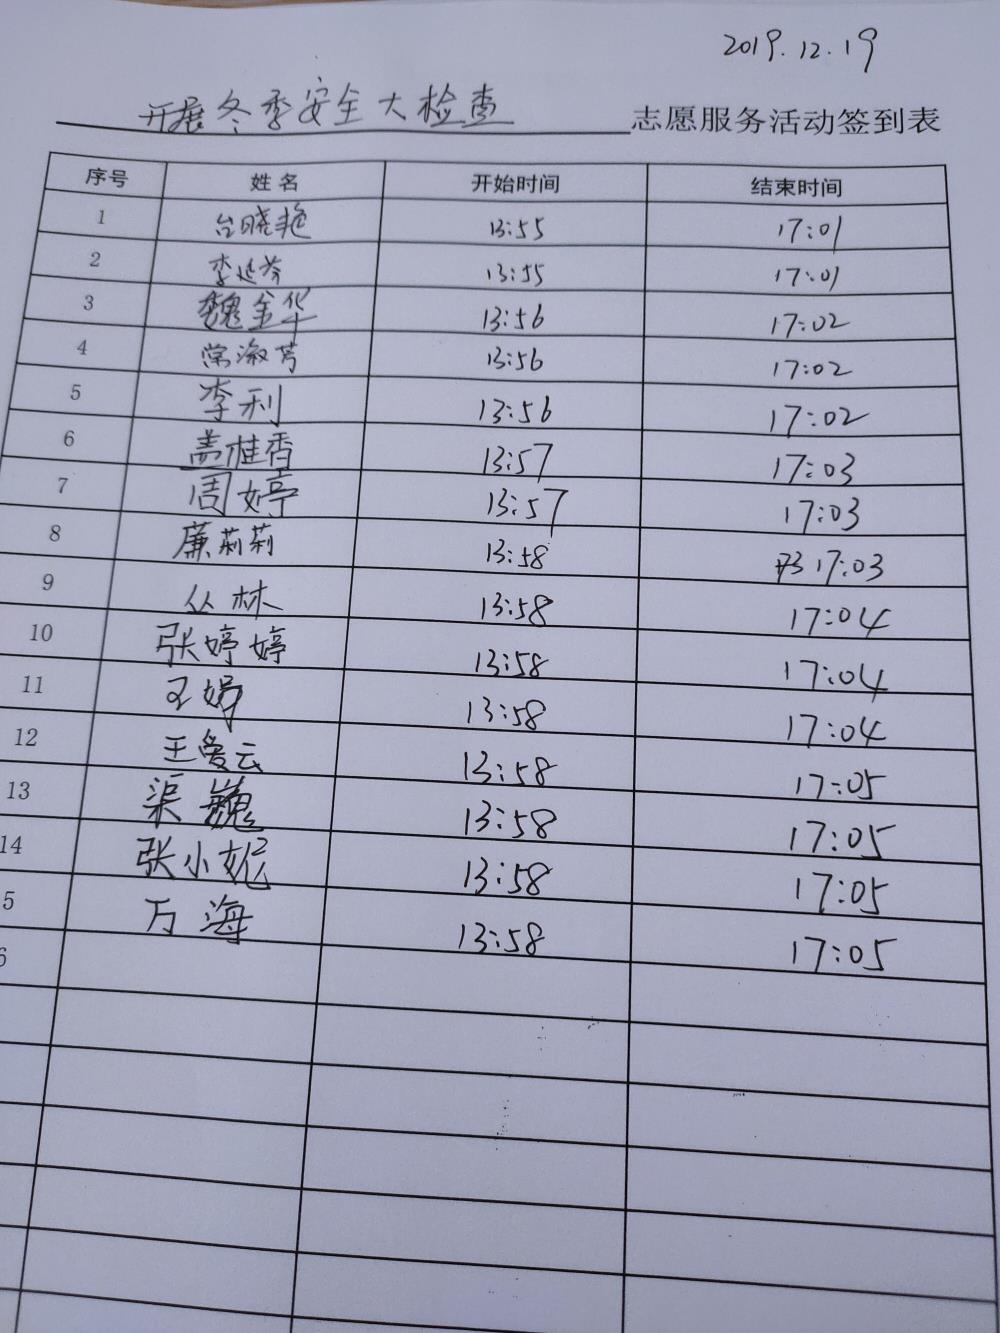 2019.12.19
开展冬季安全大检查 志愿服务活动签到表
序号 姓名 开始时间 结束时间
1 台晓艳 13:55 17:01
2 李延芬 13:55 17:01
3 魏金华 13:56 17:02
4 常淑芳 13:56 17:02
5 李利 13:56 17:02
6 盖桂香 13:57 17:03
7 周婷 13:57 17:03
8 廉莉莉 13:58 17:03
9 丛林 13:58 17:04
10 张婷婷 13:58 17:04
11 王娟 13:58 17:04
12 王爱云 13:58 17:05
13 渠巍 13:58 17:05
14 张小妮 13:58 17:05
5 万海 13:58 17:05
6